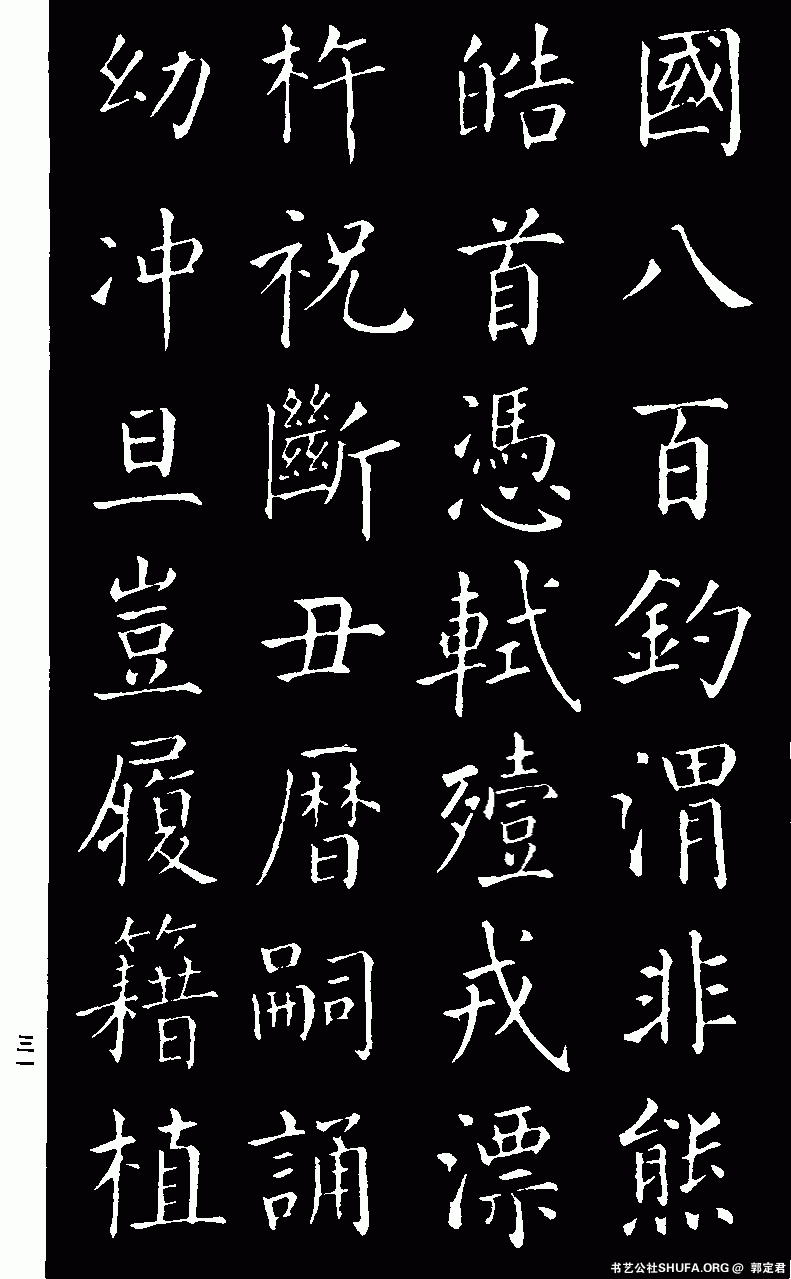 國八百鈞渭非熊
皓首憑軾殪戎漂
杵祝斷丑曆嗣誦
幼冲旦豈履籍植
三一
书艺公社SHUFA.ORG @ 郭定君